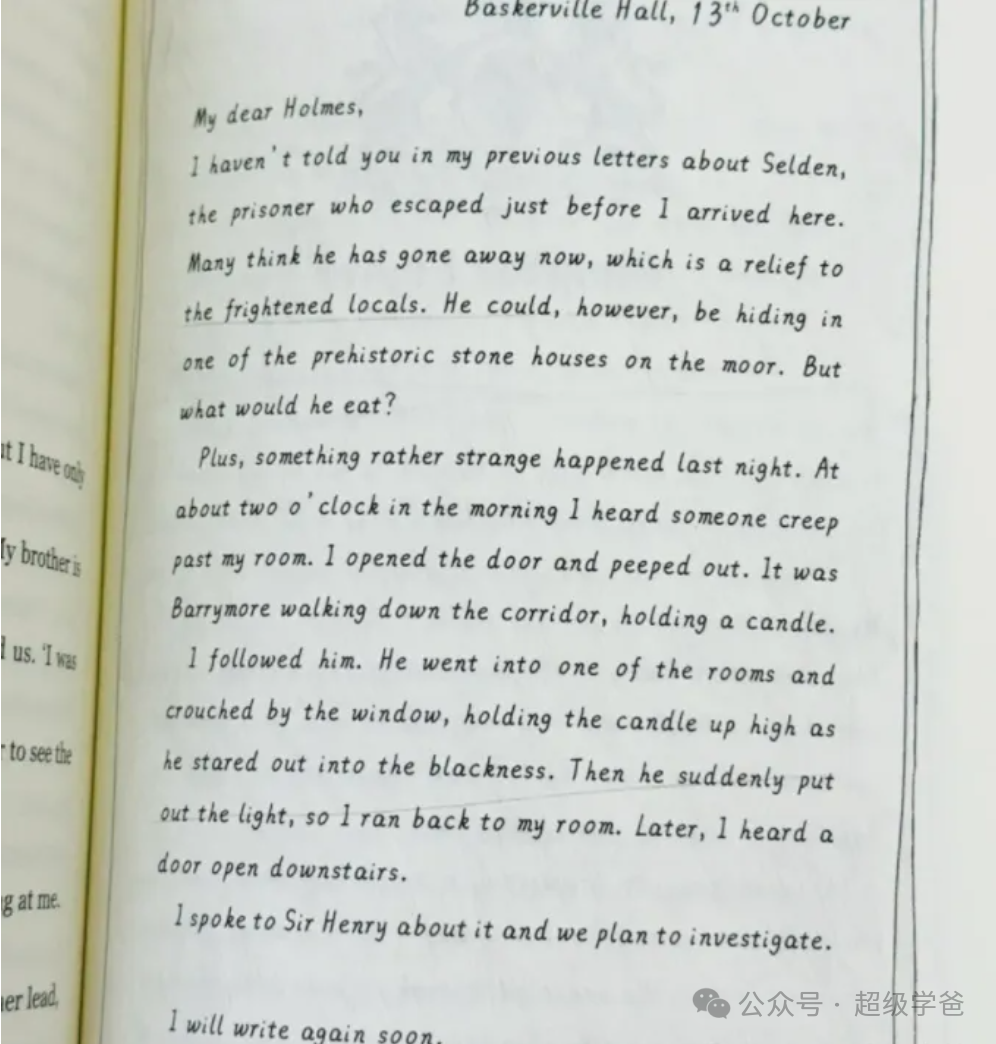 Baskerville Hall, 13th October
My dear Holmes,
I haven't told you in my previous letters about Selden,
the prisoner who escaped just before I arrived here.
Many think he has gone away now, which is a relief to
the frightened locals. He could, however, be hiding in
one of the prehistoric stone houses on the moor. But
what would he eat?
Plus, something rather strange happened last night. At
about two o'clock in the morning I heard someone creep
past my room. I opened the door and peeped out. It was
Barrymore walking down the corridor, holding a candle.
I followed him. He went into one of the rooms and
crouched by the window, holding the candle up high as
he stared out into the blackness. Then he suddenly put
out the light, so I ran back to my room. Later, I heard a
door open downstairs.
I spoke to Sir Henry about it and we plan to investigate.
I will write again soon.
I have only
brother is
us. 'I was
to see the
at me.
lead,
公众号 · 超级学爸